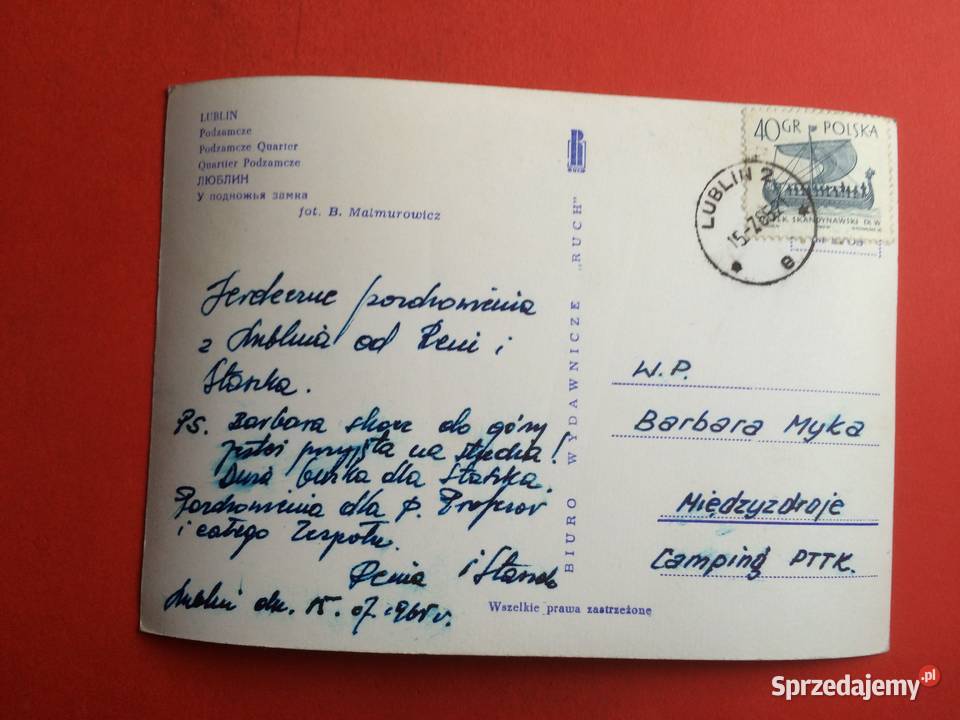 LUBLIN
Podzamcze
Podzamcze Quarter
Quartier Podzamcze
ЛЮБЛИН
У подножья замка
fot. B. Malmurowicz
RUCH
BIURO WYDAWNICZE „RUCH"
40GR POLSKA
SKANDYNAWSKI
LUBLIN 2
e
Serdeczne pozdrowienia
z Lublina od Reni i
Staszka.
PS. Barbara skacz do góry
jesteś przyjęta na studia!
Duża buźka dla Staszka.
Pozdrowienia dla p. Profesor
i całego Zespołu.
Renia i Staszek
Lublin dn. 15.07.1965r.
W.P.
Barbara Myka
Międzyzdroje
Camping PTTK.
Wszelkie prawa zastrzeżone
Sprzedajemy.pl